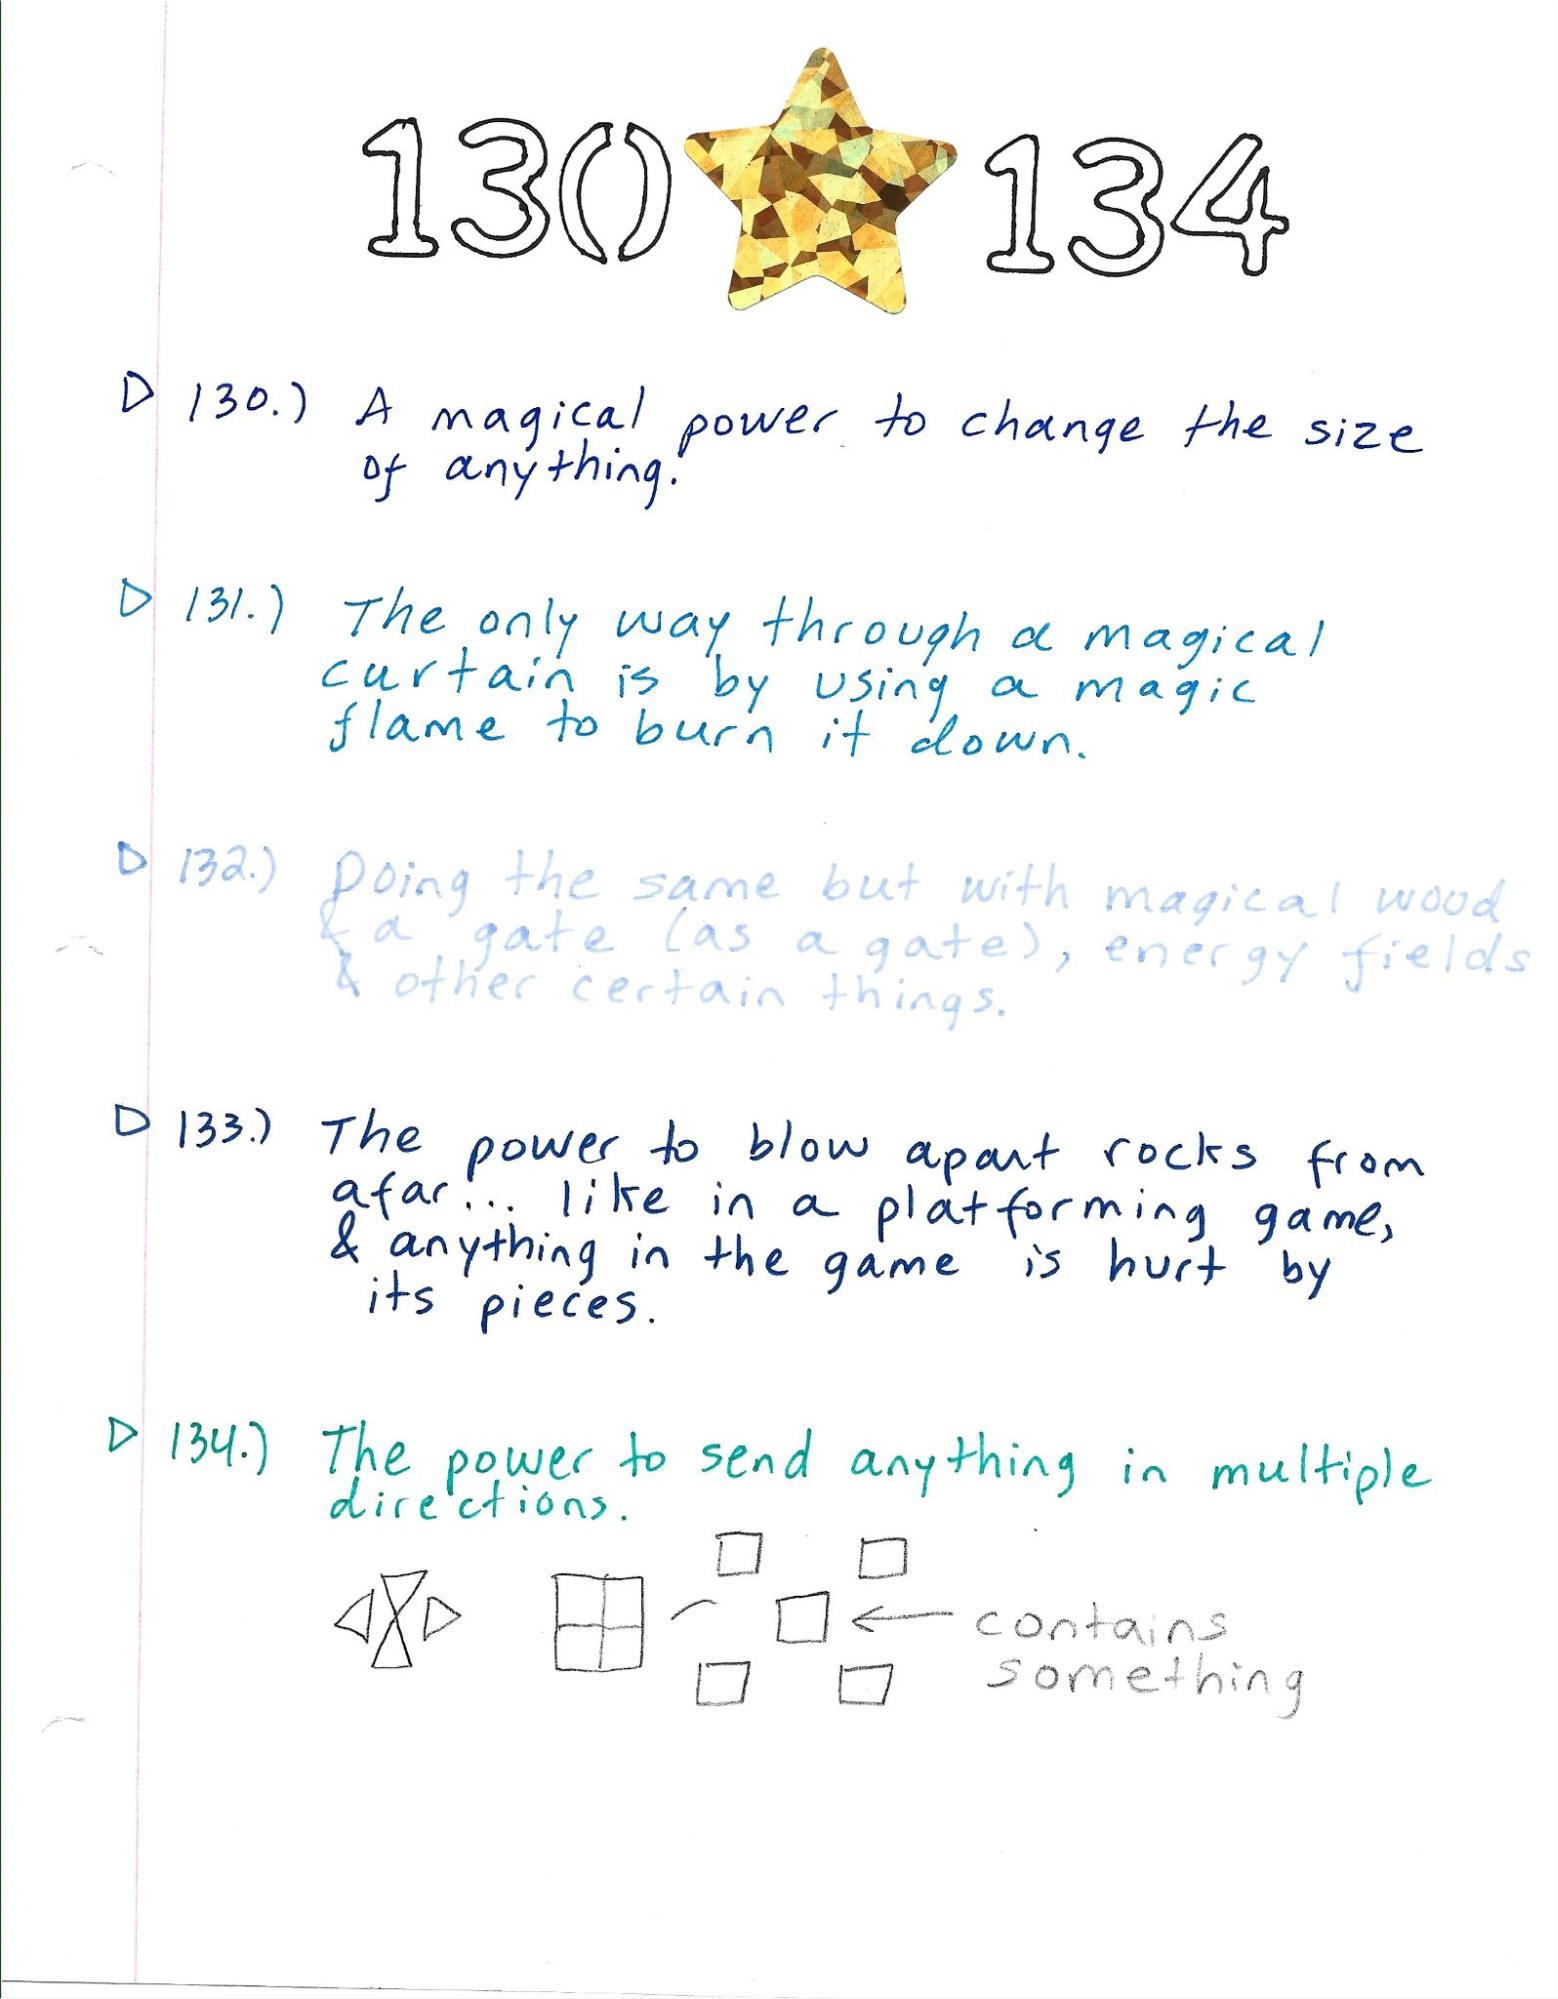 130 134
130.) A magical power to change the size
of anything.
131.) The only way through a magical
curtain is by using a magic
flame to burn it down.
132.) Doing the same but with magical wood
& a gate (as a gate), energy fields
& other certain things.
133.) The power to blow apart rocks from
afar... like in a platforming game,
& anything in the game is hurt by
its pieces.
134.) The power to send anything in multiple
directions.
contains
something